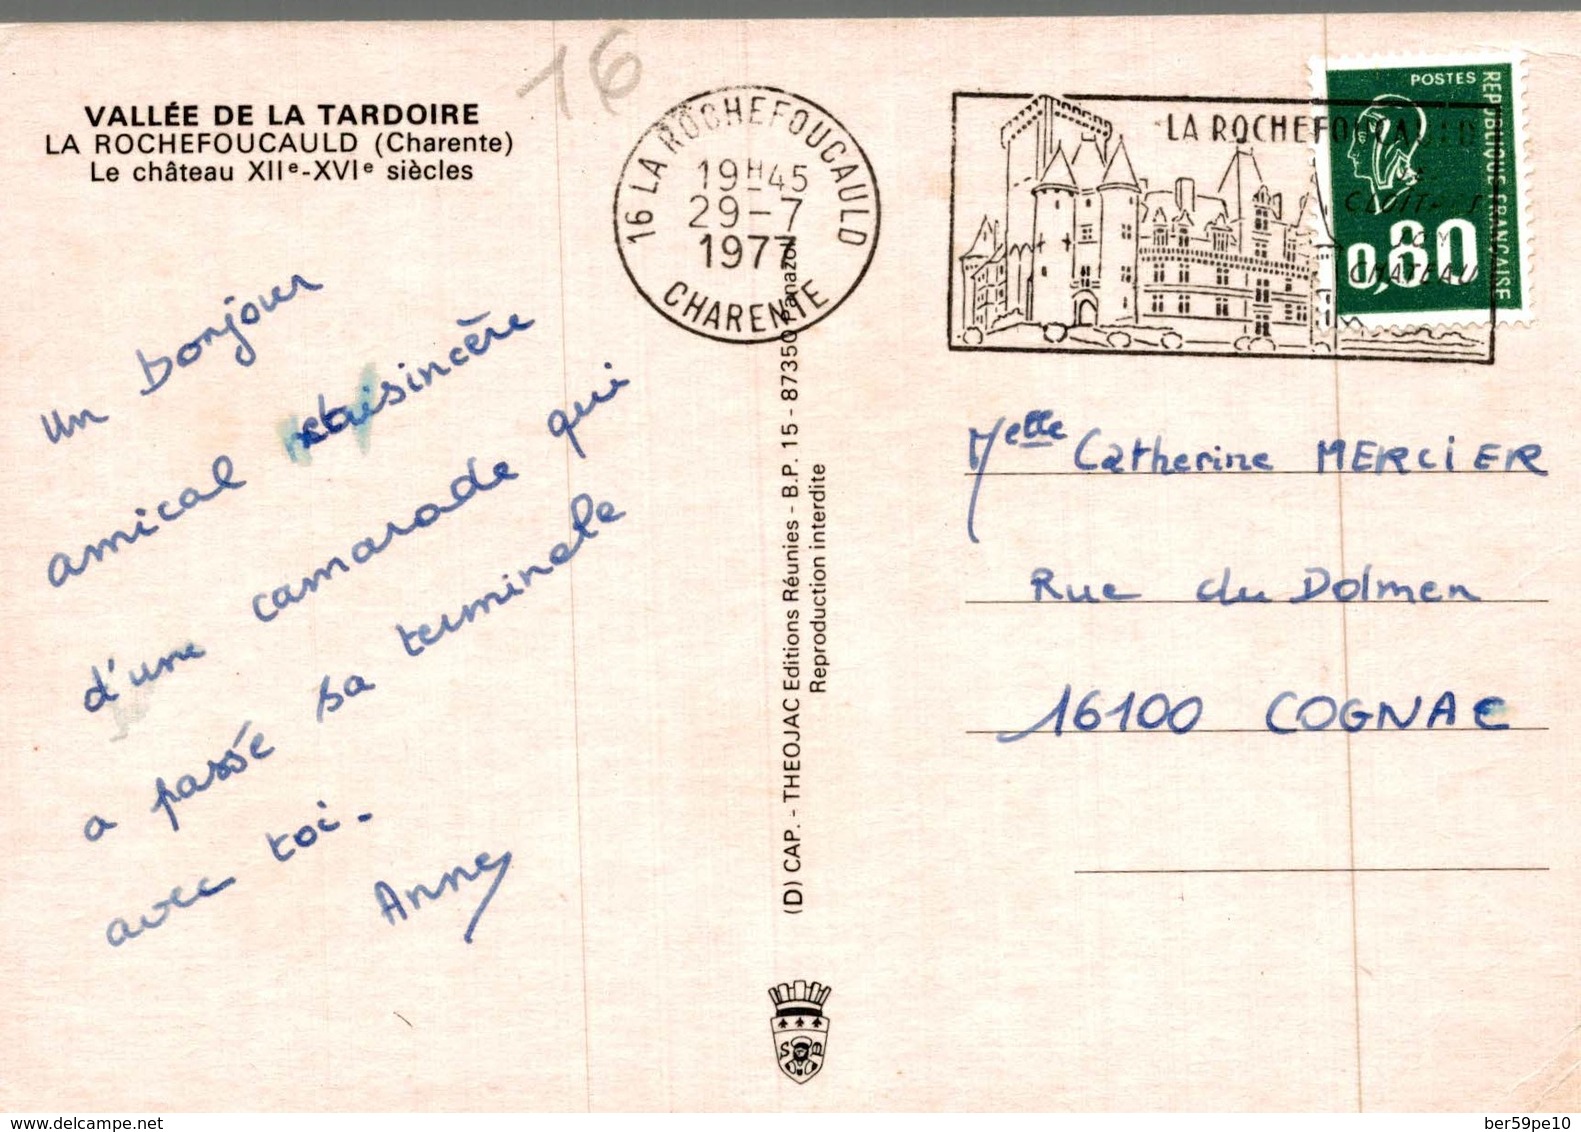 16
VALLÉE DE LA TARDOIRE
LA ROCHEFOUCAULD (Charente)
Le château XIIe-XVIe siècles
16 LA ROCHEFOUCAULD
19H45
29-7
1977
CHARENTE
LA ROCHEFOUCAULD
SON
CHATEAU
POSTES
REPUBLIQUE FRANÇAISE
0,80
un bonjour
amical et sincère
d'une camarade qui
a passé sa terminale
avec toi.
Anne
(D) CAP. - THEOJAC Editions Réunies - B.P. 15 - 87350 Panazol
Reproduction interdite
Melle Catherine MERCIER
Rue du Dolmen
16100 COGNAC
S M
delcampe.net
ber59pe10